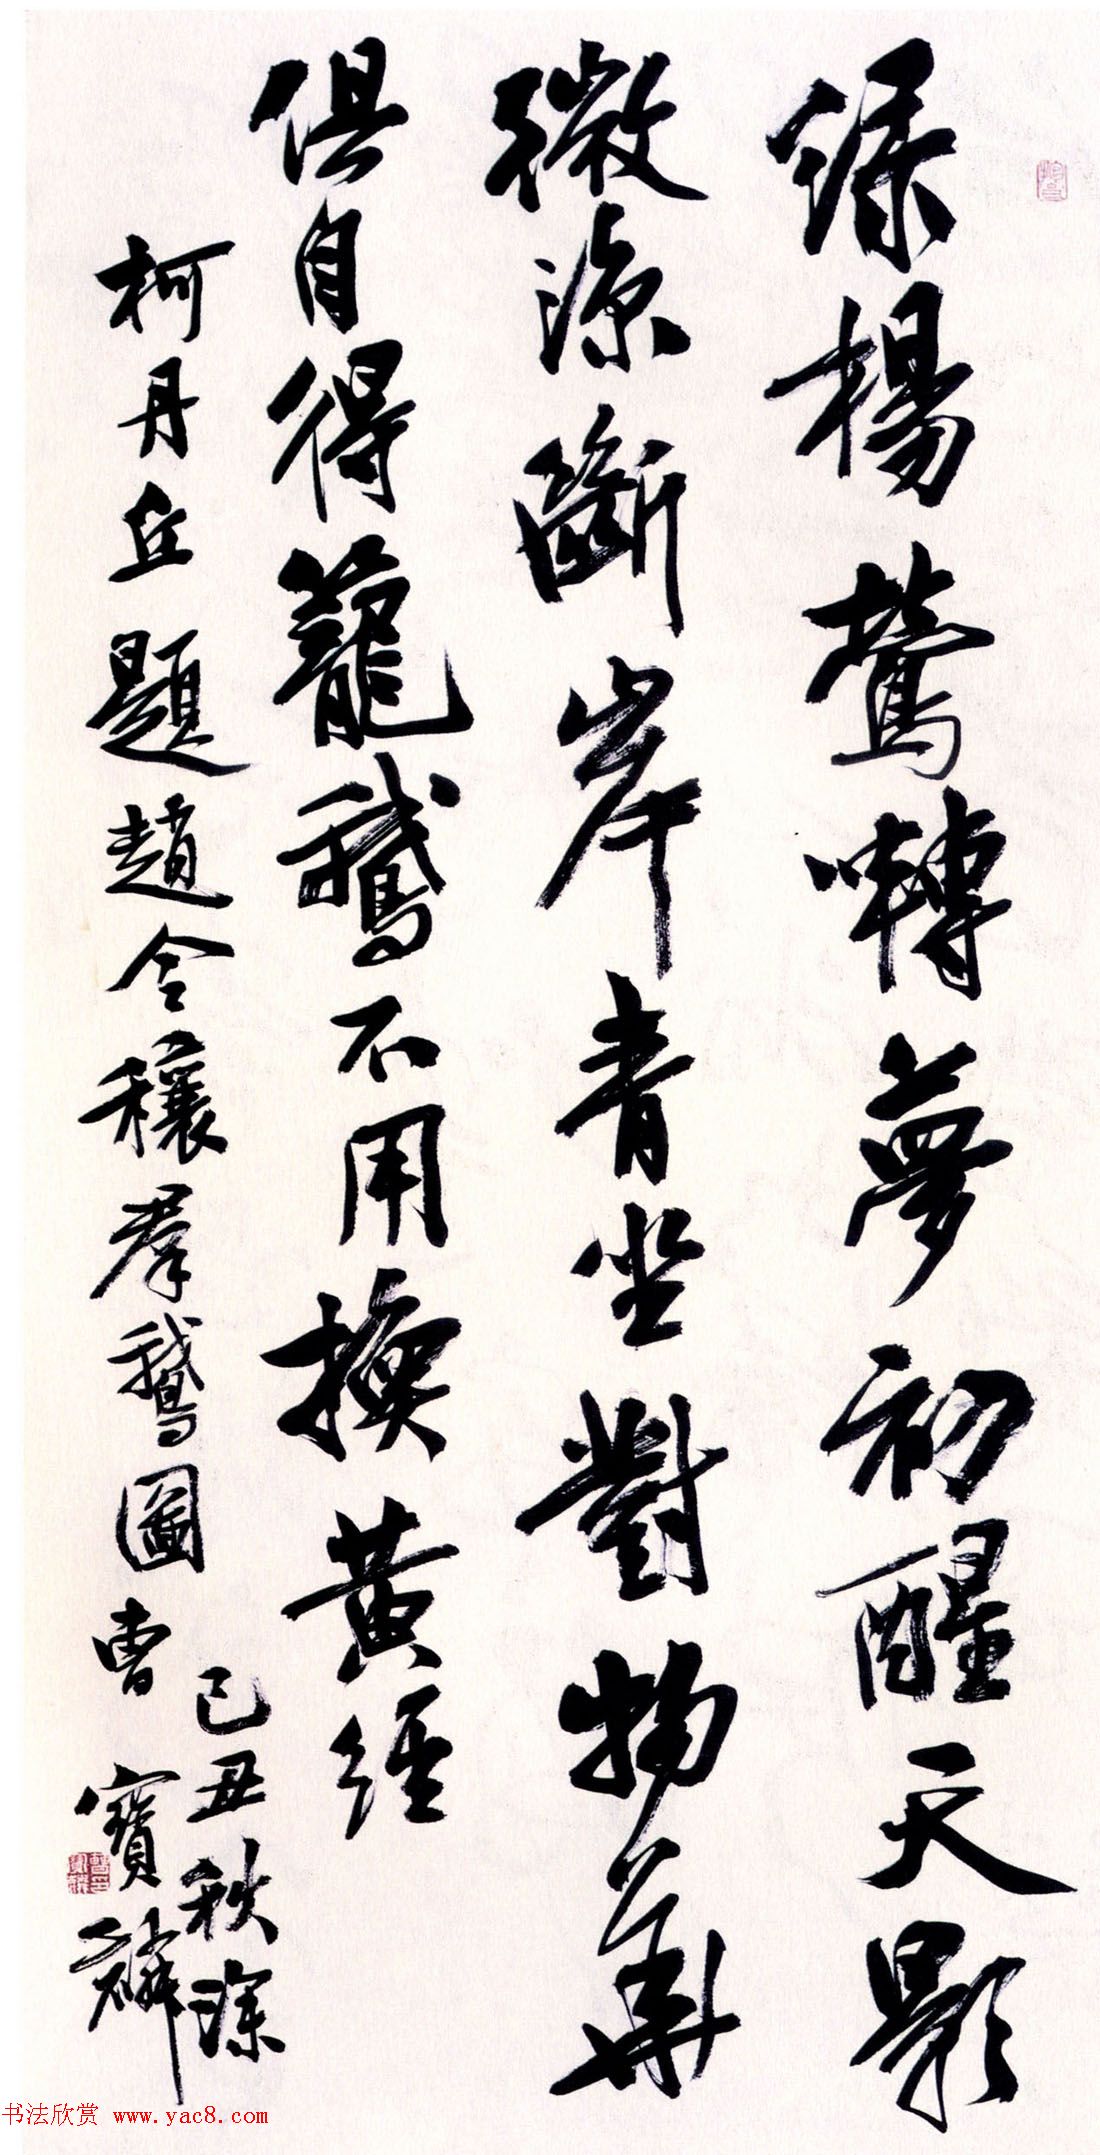 緑楊鶯囀夢初醒天影
微涼斷岸青坐對物華
俱自得籠鵝不用換黃經
柯丹丘題趙令穰羣鵝圖曹寶麟
己丑秋深
书法欣赏 www.yac8.com